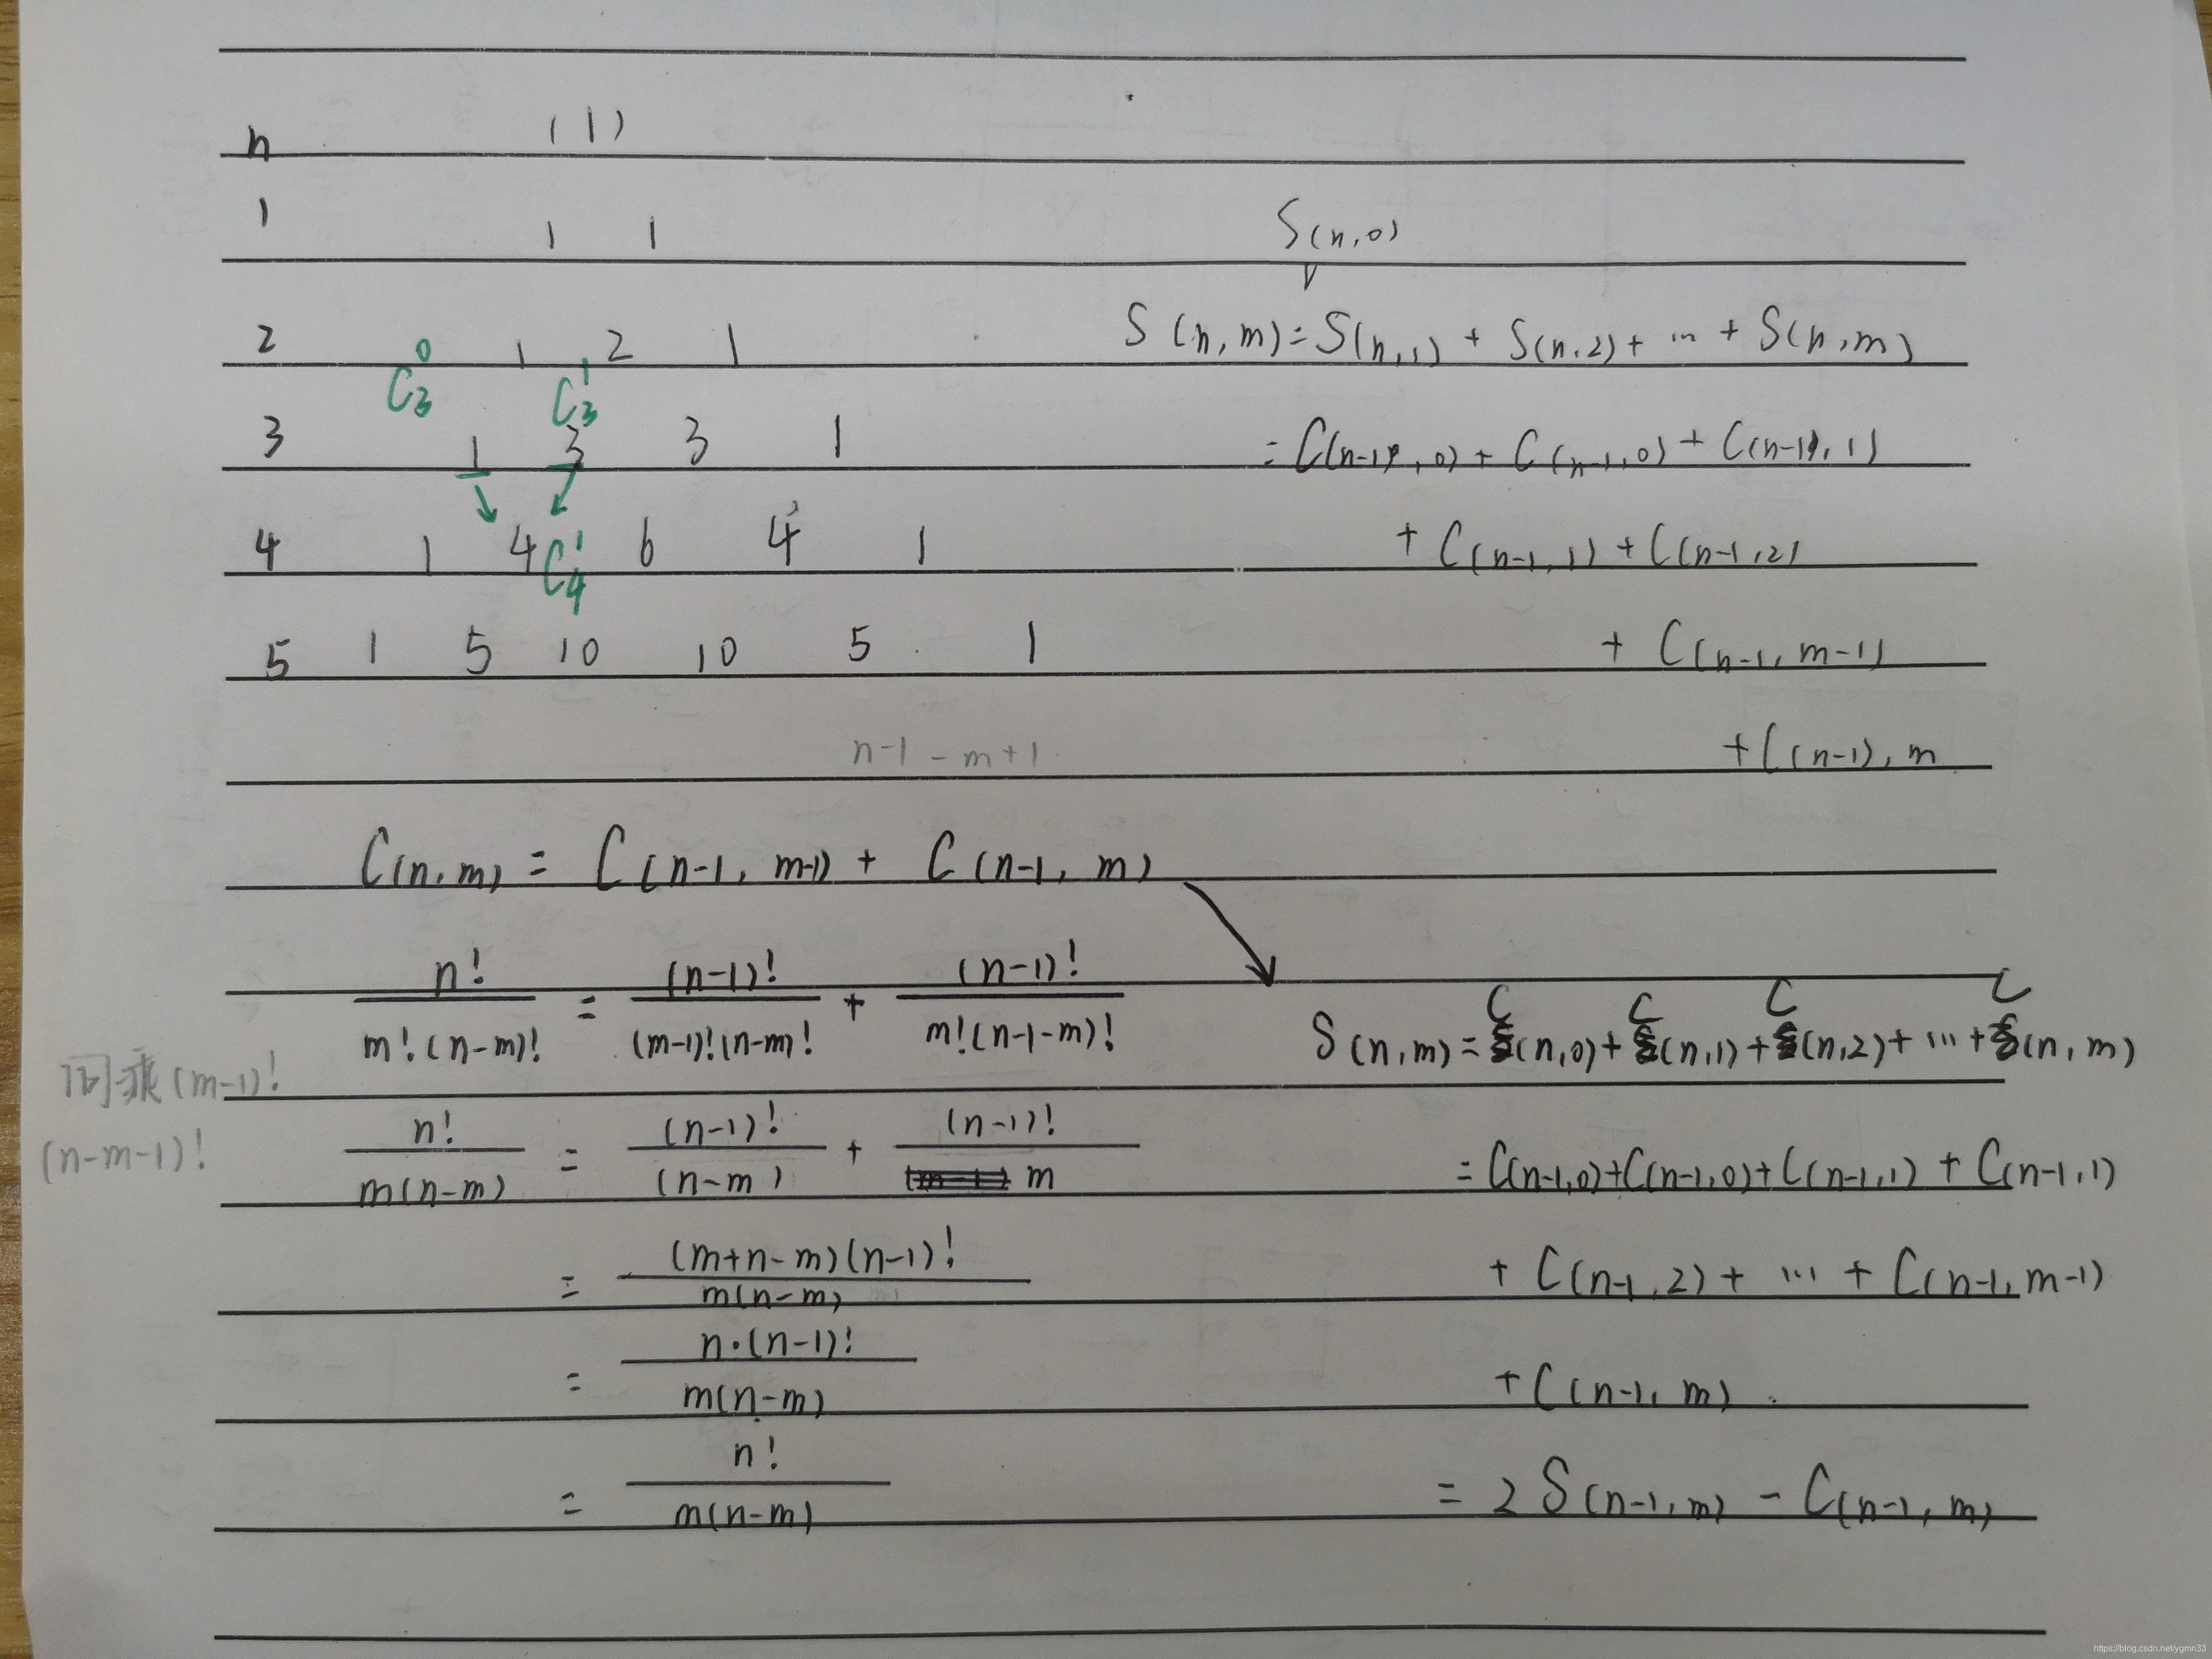 n (1)
1 1 1
2 1 2 1
C₃⁰ C₃¹
3 1 3 3 1
4 1 4 6 4 1
C₄¹
5 1 5 10 10 5 1
S(n,0)
S(n,m)=S(n,1) + S(n,2) + ... + S(n,m)
= C(n-1),0) + C(n-1,0) + C(n-1),1)
+ C(n-1,1) + C(n-1,2)
+ C(n-1,m-1)
+ C(n-1),m
n-1-m+1
C(n,m) = C(n-1, m-1) + C(n-1, m)
n!/m!(n-m)! = (n-1)!/(m-1)!(n-m)! + (n-1)!/m!(n-1-m)!
同乘(m-1)!
(n-m-1)!
n!/m(n-m) = (n-1)!/(n-m) + (n-1)!/m
= (m+n-m)(n-1)!/m(n-m)
= n·(n-1)!/m(n-m)
= n!/m(n-m)
S(n,m)=C(n,0)+C(n,1)+C(n,2)+...+C(n,m)
=C(n-1,0)+C(n-1,0)+C(n-1,1)+C(n-1,1)
+ C(n-1,2) + ... + C(n-1,m-1)
+ C(n-1,m)
= 2S(n-1,m) - C(n-1,m)
https://blog.csdn.net/ygmn33